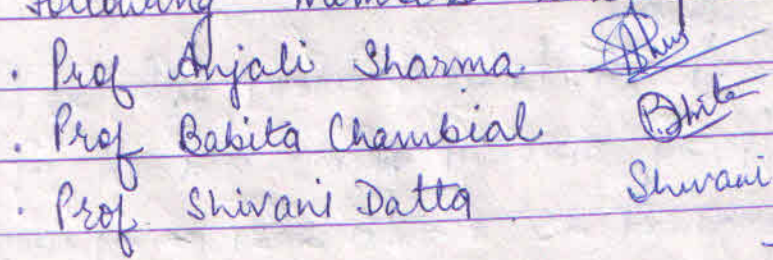 following members
. Prof Anjali Sharma
. Prof Babita Chambial
. Prof Shivani Datta Shivani